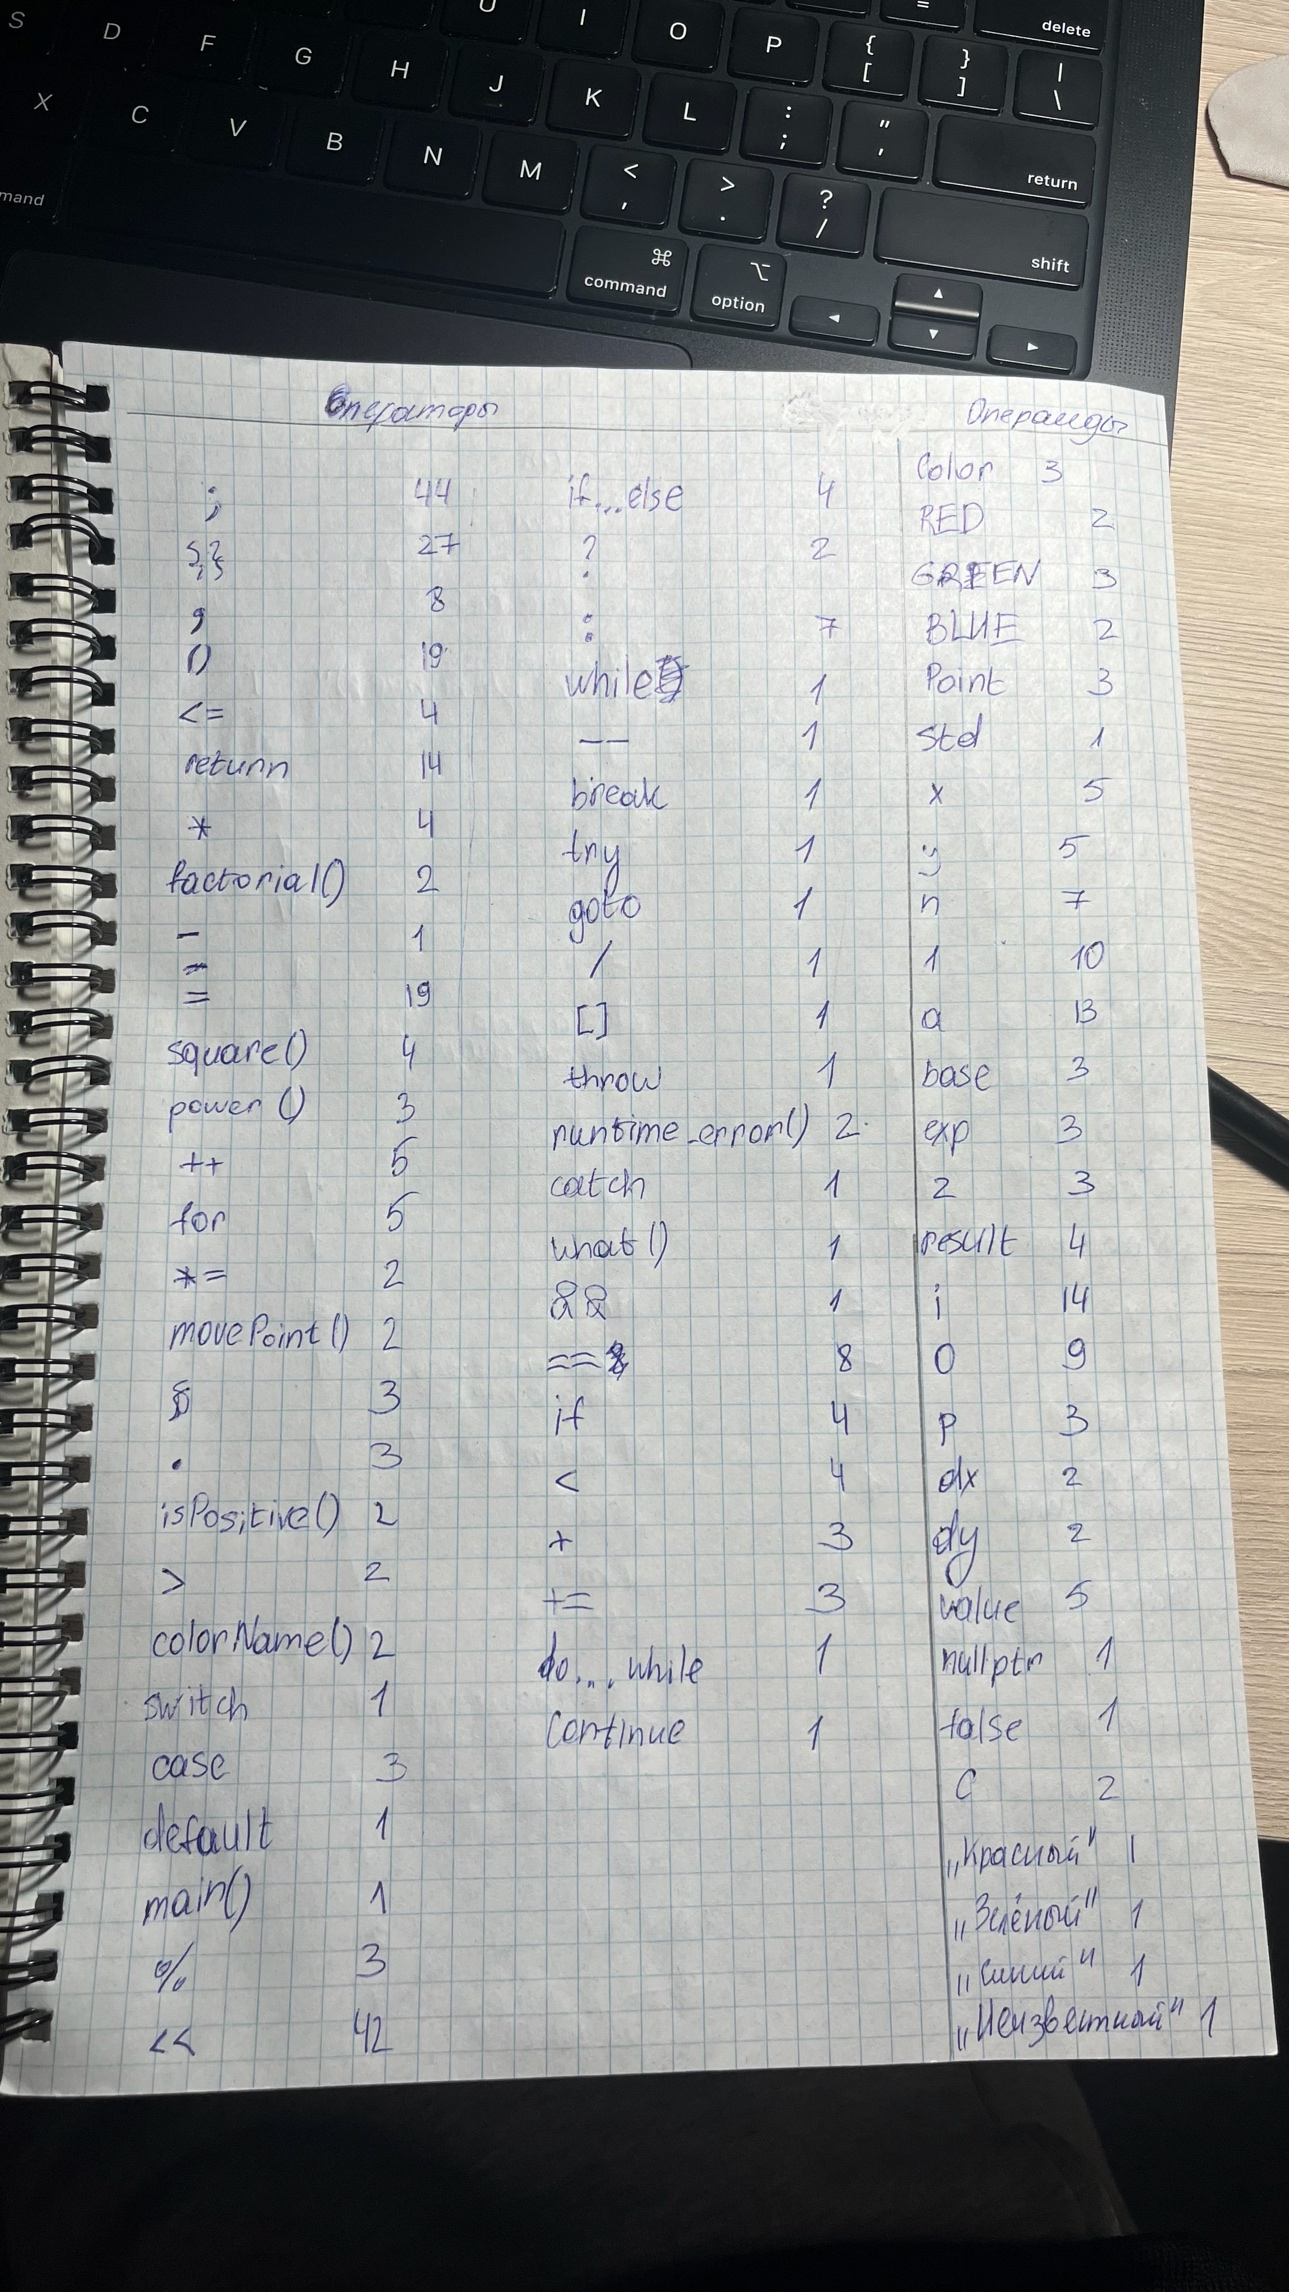 S D F G H J K L : ;
U I O P { [ } ] | \
= delete
X C V B N M < , > . ? /
" ' return
mand command option shift
Операторы
; 44
{} 27
, 8
() 19
<= 4
return 14
* 4
factorial() 2
- 1
= 19
square() 4
power() 3
++ 5
for 5
*= 2
movePoint() 2
3
. 3
isPositive() 2
> 2
colorName() 2
switch 1
case 3
default 1
main() 1
% 3
<< 42
if...else 4
? 2
: 7
while 1
-- 1
break 1
try 1
goto 1
/ 1
[] 1
throw 1
runtime_error() 2
catch 1
what() 1
&& 1
== 8
if 4
< 4
+ 3
+= 3
do....while 1
Continue 1
Операнды
Color 3
RED 2
GREEN 3
BLUE 2
Point 3
std 1
x 5
y 5
n 7
1 10
a 13
base 3
exp 3
2 3
result 4
i 14
0 9
p 3
dx 2
dy 2
value 5
nullptr 1
false 1
C 2
„Красный" 1
„Зелёный" 1
„Синий" 1
„Неизвестный" 1